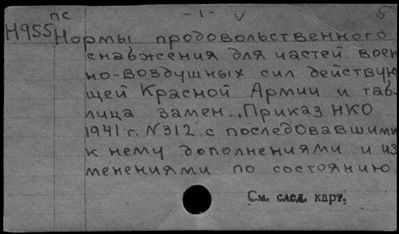 пс - 1 - V б
Н955 Нормы продовольственного
снабжения для частей воен-
но-воздушных сил действую-
щей Красной Армии и таб-
лица замен. „Приказ НКО
1941 г. №312 с последовавшими
к нему дополнениями и из-
менениями по состоянию
См. след. карт.